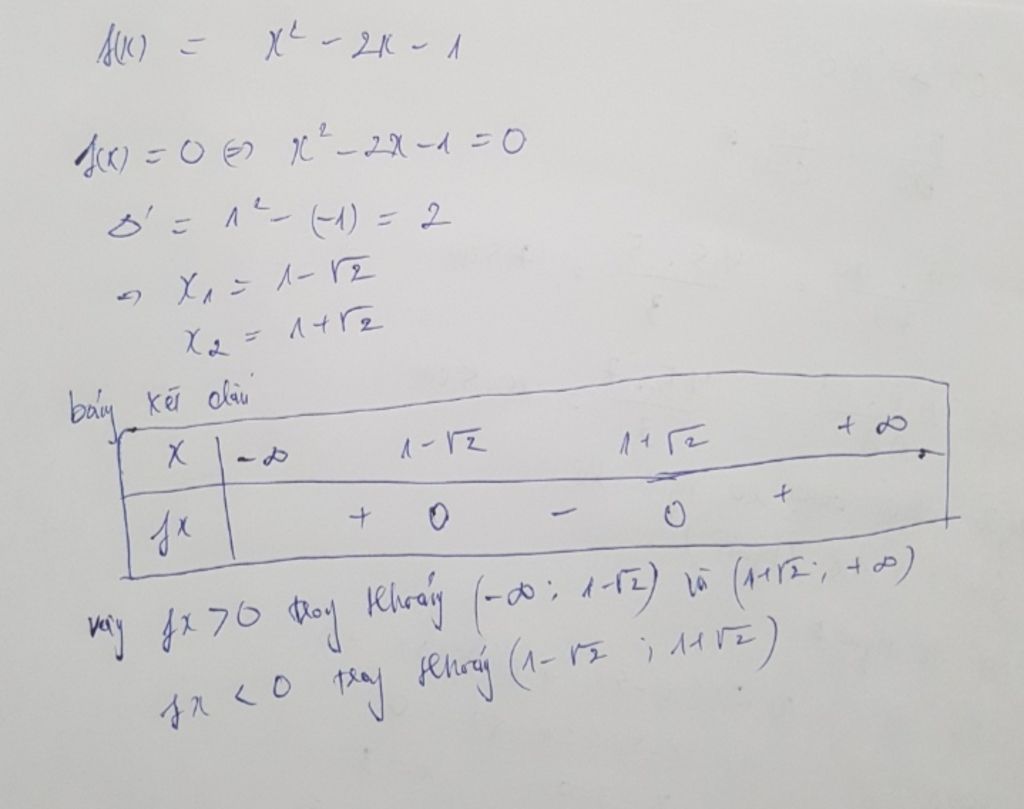 f(x) = x² - 2x - 1
f(x) = 0 ⇔ x² - 2x - 1 = 0
Δ' = 1² - (-1) = 2
⇒ x₁ = 1 - √2
x₂ = 1 + √2
bảng xét dấu
x -∞ 1-√2 1+√2 +∞
fx + 0 - 0 +
vậy fx > 0 trong khoảng (-∞; 1-√2) và (1+√2; +∞)
fx < 0 trong khoảng (1-√2 ; 1+√2)